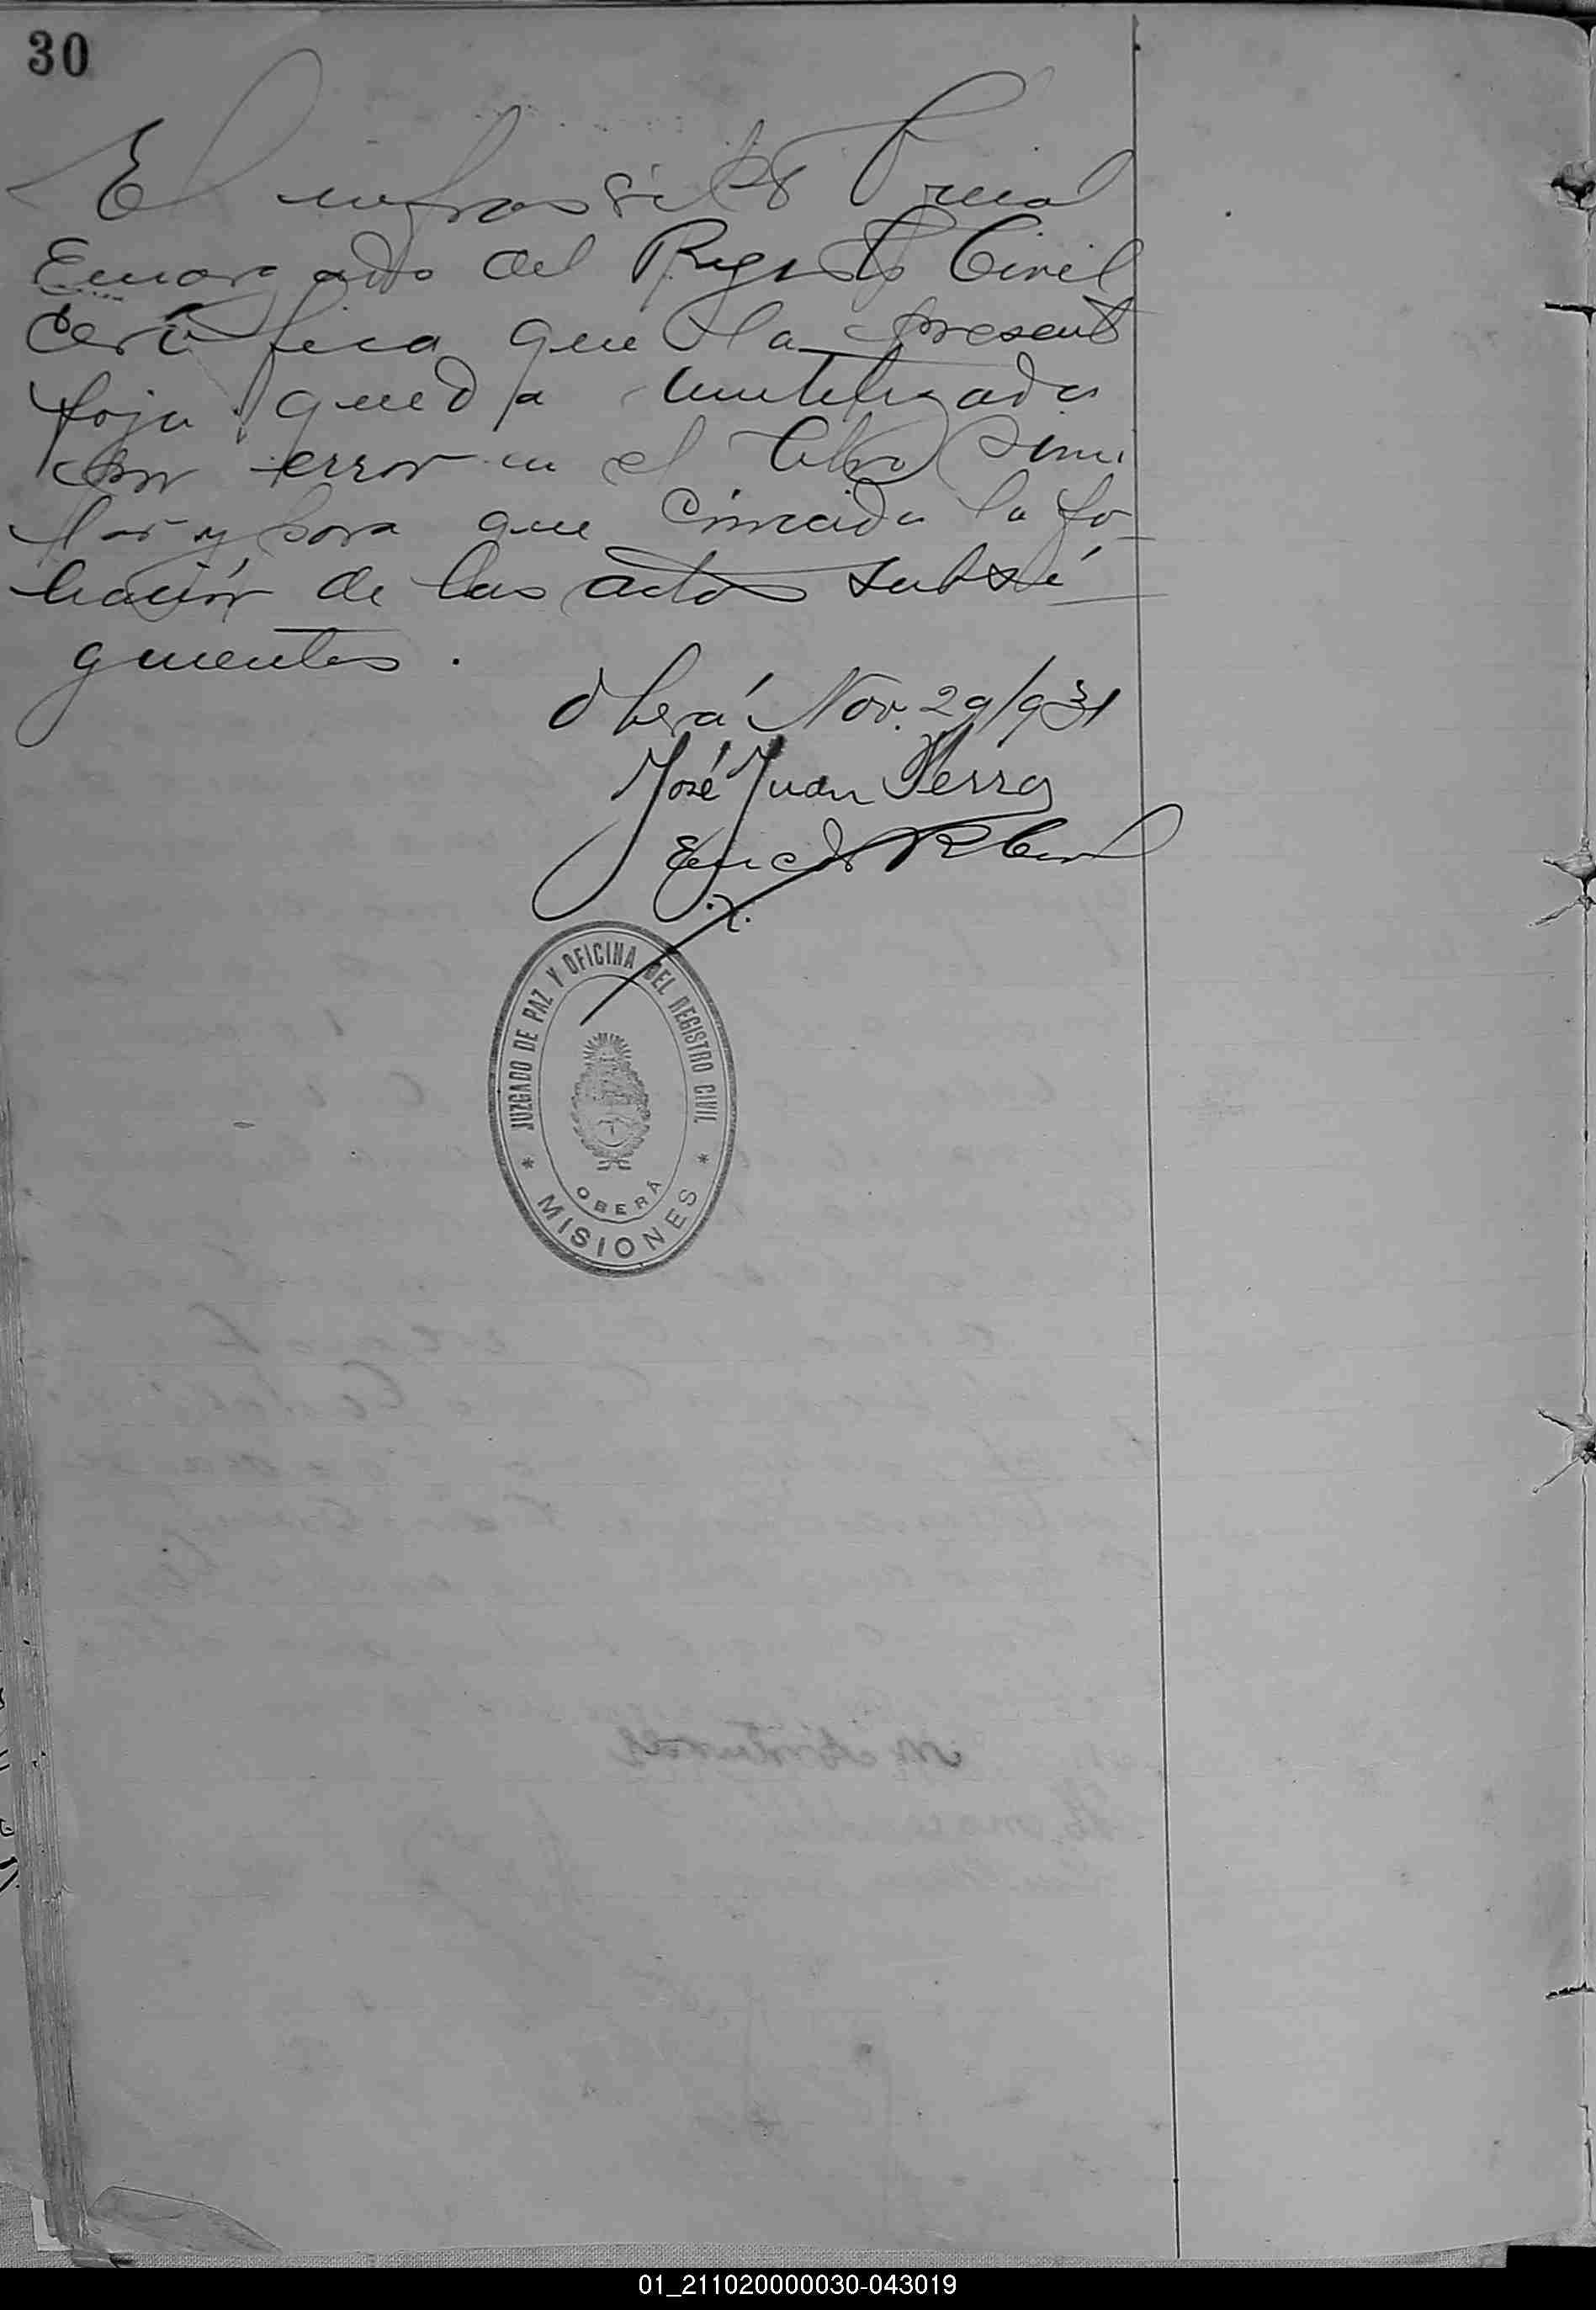 30
El infrascrito
Encargado del Registo Civil
Certifica que la present
foja queda inutilizada
por error en el libro simi
lar y para que coincida la fo-
liación de las actos subsi
guientes.
Oberá Nov. 29/931
José Juan
Encdo R Civil
JUZGADO DE PAZ Y OFICINA DEL REGISTRO CIVIL
* OBERÁ *
MISIONES
01_211020000030-043019